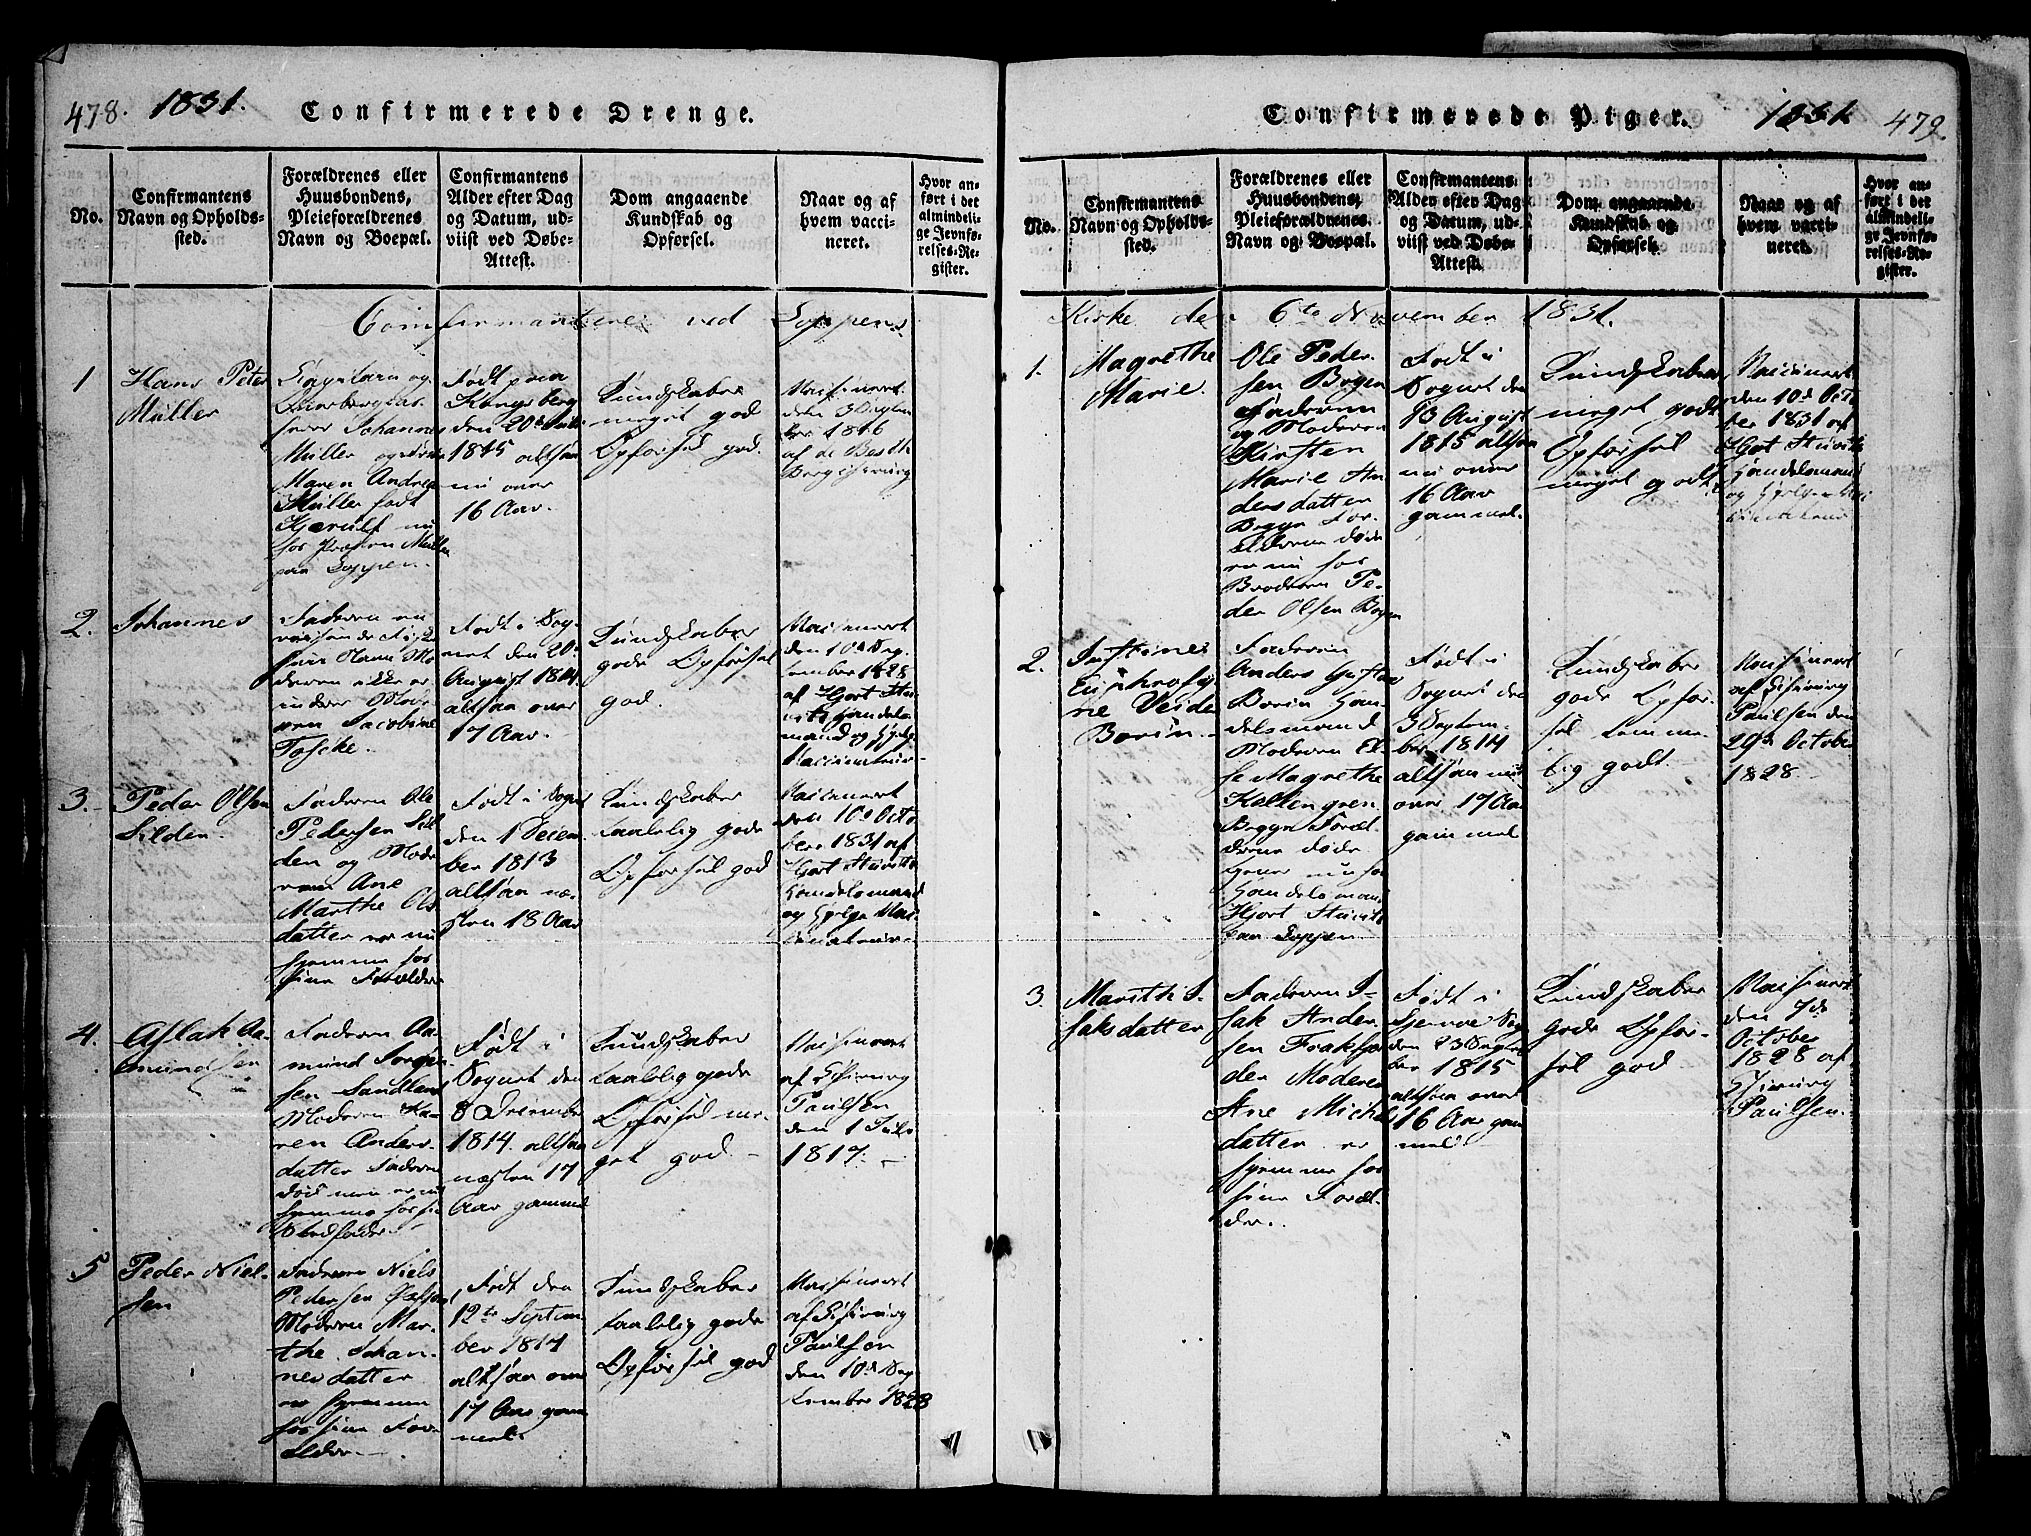 478. 1831. Confirmerede Drenge.
No.
Confirmantens
Navn og Opholds-
sted.
Forældrenes eller
Huusbondens,
Pleieforældrenes
Navn og Boepæl.
Confirmantens
Alder efter Dag
og Datum, ud-
viist ved Døbe-
Attest.
Dom angaaende
Kundskab og
Opførsel.
Naar og af
hvem vacci-
neret.
Hvor an-
ført i det
almindeli-
ge Jevnfø-
relses-Re-
gister.
Confirmantene ved Loppens
1
Hans Peter
Müller
Johannes
Müller
Maren Andrea
Müller født
Kjerulf nu
hos Præsten Müller
paa Loppen.
Født paa
Kongsberg
den 20de Juli
1815 altsaa
nu over
16 Aar.
Kundskaber
meget god
Opførsel god.
1816
2.
Johannes
Faderen en
Moderen ikke er
Jacobine
Født i Sog-
net den 20de
August 1814
altsaa over
17 Aar.
Kundskaber
gode Opførsel
god.
Vaccineret
den 10de Sep-
tember 1828
af Hjort
Handels-
mand og
3.
Peder Olsen
Silden.
Faderen Ole
Pedersen Sil-
den og Mode-
ren Ane
Marthe Ols
datter er nu
hjemme hos
sine Forældre
Født i Sognet
den 1 Decem-
ber 1813
altsaa næ-
sten 18 Aar
Kundskaber
taalelig gode
Opførsel god
Vaccineret
den 10de Octo-
ber 1831 af
Hjort
Handelsmand
og
4.
Aslak Aa-
mundsen
Faderen Aa-
mund Jørgen-
sen Sandland
Moderen Ka-
ren Anders-
datter Faderen
død men er nu
hjemme hos sin
Stedfader.
Født i
Sognet den
8 December
1814. altsaa
næsten 17
Aar gammel
Kundskaber
taalelig gode
Opførsel me-
get god
Vaccineret
af Chirurg
Paulsen
den 1 Juli
1817.
5
Peder Niel-
sen
Faderen Niels
Pedersen
Moderen Mar-
the Johan-
nesdatter
er hjemme
hos sine For-
ældre
Født den
12te Septem
ber 1814
altsaa over
17 Aar gam
mel.
Kundskaber
taalelig gode
Opførsel god
Vaccineret
af Chirurg
Paulsen
den 10de Sep
tember 1828
Confirmerede Piger. 1831. 479.
No.
Confirmantens
Navn og Opholds-
sted.
Forældrenes eller
Huusbondens,
Pleieforældrenes
Navn og Boepæl.
Confirmantens
Alder efter Dag
og Datum, ud-
viist ved Døbe-
Attest.
Dom angaaende
Kundskab og
Opførsel.
Naar og af
hvem vacci-
neret.
Hvor an-
ført i det
almindeli-
ge Jevnfø-
relses-Re-
gister.
Kirke den 6te November 1831.
1.
Magrethe
Marie.
Ole Peder-
sen Bogen
Faderen
og Moderen
Kirsten
Marie An
dersdatter
Begge For-
ældrene døde
er nu hos
Broderen Pe-
der Olsen Bogen
Født i
Sognet den
13 August
1815 altsaa
nu over
16 Aar
gammel.
Kundskaber
meget godt
Opførsel
meget godt.
Vaccineret
den 10de Octo
ber 1831 af
Hjort
Handelsmand
og
2.
Justine
Euphrosy
ne
Borin.
Faderen
Anders Gustav
Borin Han-
delsmand
Moderen El-
se Magrethe
Begge Foræl-
drene døde
Hjemme nu hos
Handelsmand
Hjort
paa Loppen
Født i
Sognet den
3 Septem-
ber 1814
altsaa nu
over 17 Aar
gammel
Kundskaber
gode Opfør-
sel temme-
lig godt.
Vaccineret
af Chirurg
Paulsen den
29de October
1828
3.
Marithe I-
saksdatter
Faderen I-
sak Ander-
sen Frakfjor
den Moderen
Ane Michels
datter er
hjemme hos
sine Foræl-
dre.
Født i
Sog-
den 23 Septem
ber 1815
altsaa over
16 Aar gam
mel
Kundskaber
gode Opfør-
sel god
Vaccineret
den 7de
October
1828 af
Chirurg
Paulsen.